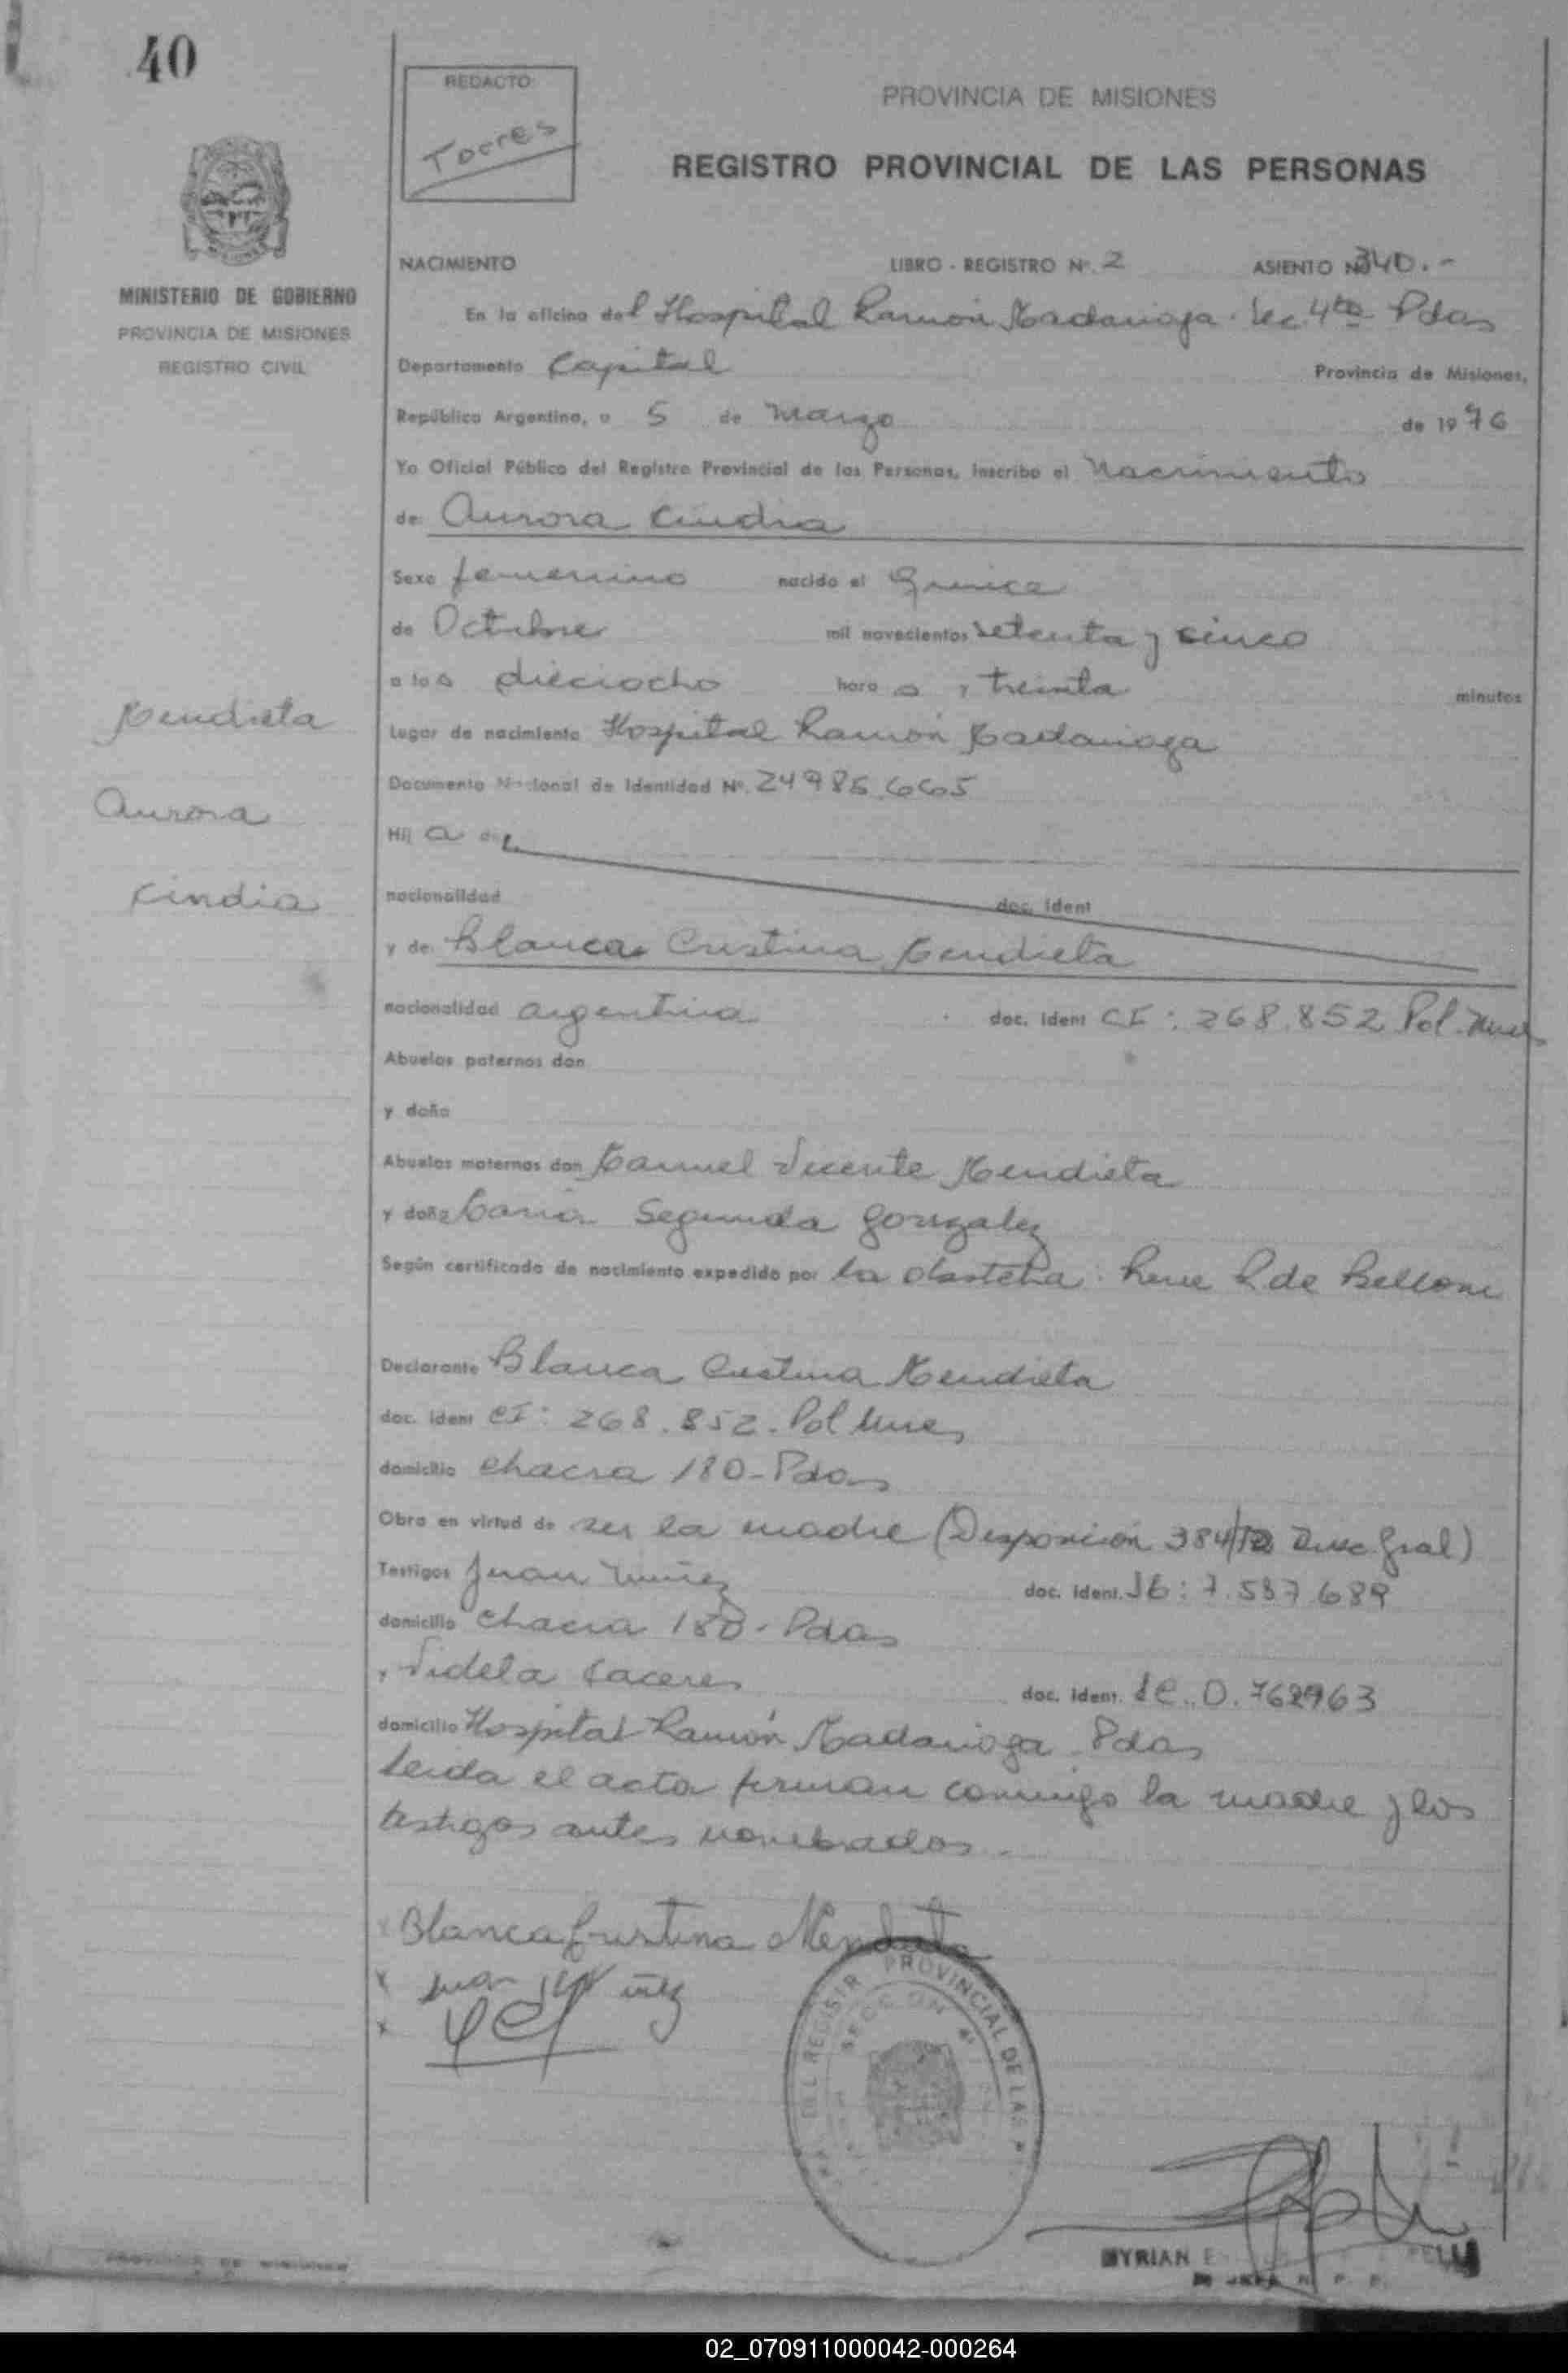 40
REDACTO:
Torres
PROVINCIA DE MISIONES
REGISTRO PROVINCIAL DE LAS PERSONAS
MINISTERIO DE GOBIERNO
PROVINCIA DE MISIONES
REGISTRO CIVIL
NACIMIENTO LIBRO - REGISTRO Nº. 2 ASIENTO Nº 340.-
En la oficina del Hospital Ramón Madariaga. Sec. 4ta Pdas
Departamento Capital Provincia de Misiones,
República Argentina, a 5 de Marzo de 1976
Yo Oficial Público del Registro Provincial de las Personas, inscribo el Nacimiento
de: Aurora Cindia
Sexo femenino nacido el Quince
de Octubre mil novecientos setenta y cinco
a las dieciocho horas y treinta minutos
Mendieta
Lugar de nacimiento Hospital Ramón Madariaga
Documento Nacional de Identidad Nº.
Aurora
Hija de
Cindia
nacionalidad doc. ident
y de: Blanca Cristina Mendieta
nacionalidad argentina doc. ident CI: 268.852 Pol. Mnes
Abuelos paternos don
y doña
Abuelos maternos don Manuel Vicente Mendieta
y doña María Segunda Gonzalez
Según certificado de nacimiento expedido por la obstetra: de Bellone
Declarante Blanca Cristina Mendieta
doc. ident CI: 268.852. Pol Mnes
domicilio Chacra 180-Pdas
Obra en virtud de ser la madre (Disposición Gral)
Testigos Juan Nuñez doc. ident.
domicilio Chacra 180- Pdas
y Fidela Caceres doc. ident. LC. 0.762963
domicilio Hospital Ramón Madariaga. Pdas
Leida el acta firman conmigo la madre y los
testigos antes nombrados.
x Blanca Cristina Mendieta
x Juan Nuñez
x
PROVINCIAL DE LAS
SECCION 4ª
MYRIAN
JEFA R. P. P.
PROVINCIA DE MISIONES
02_070911000042-000264